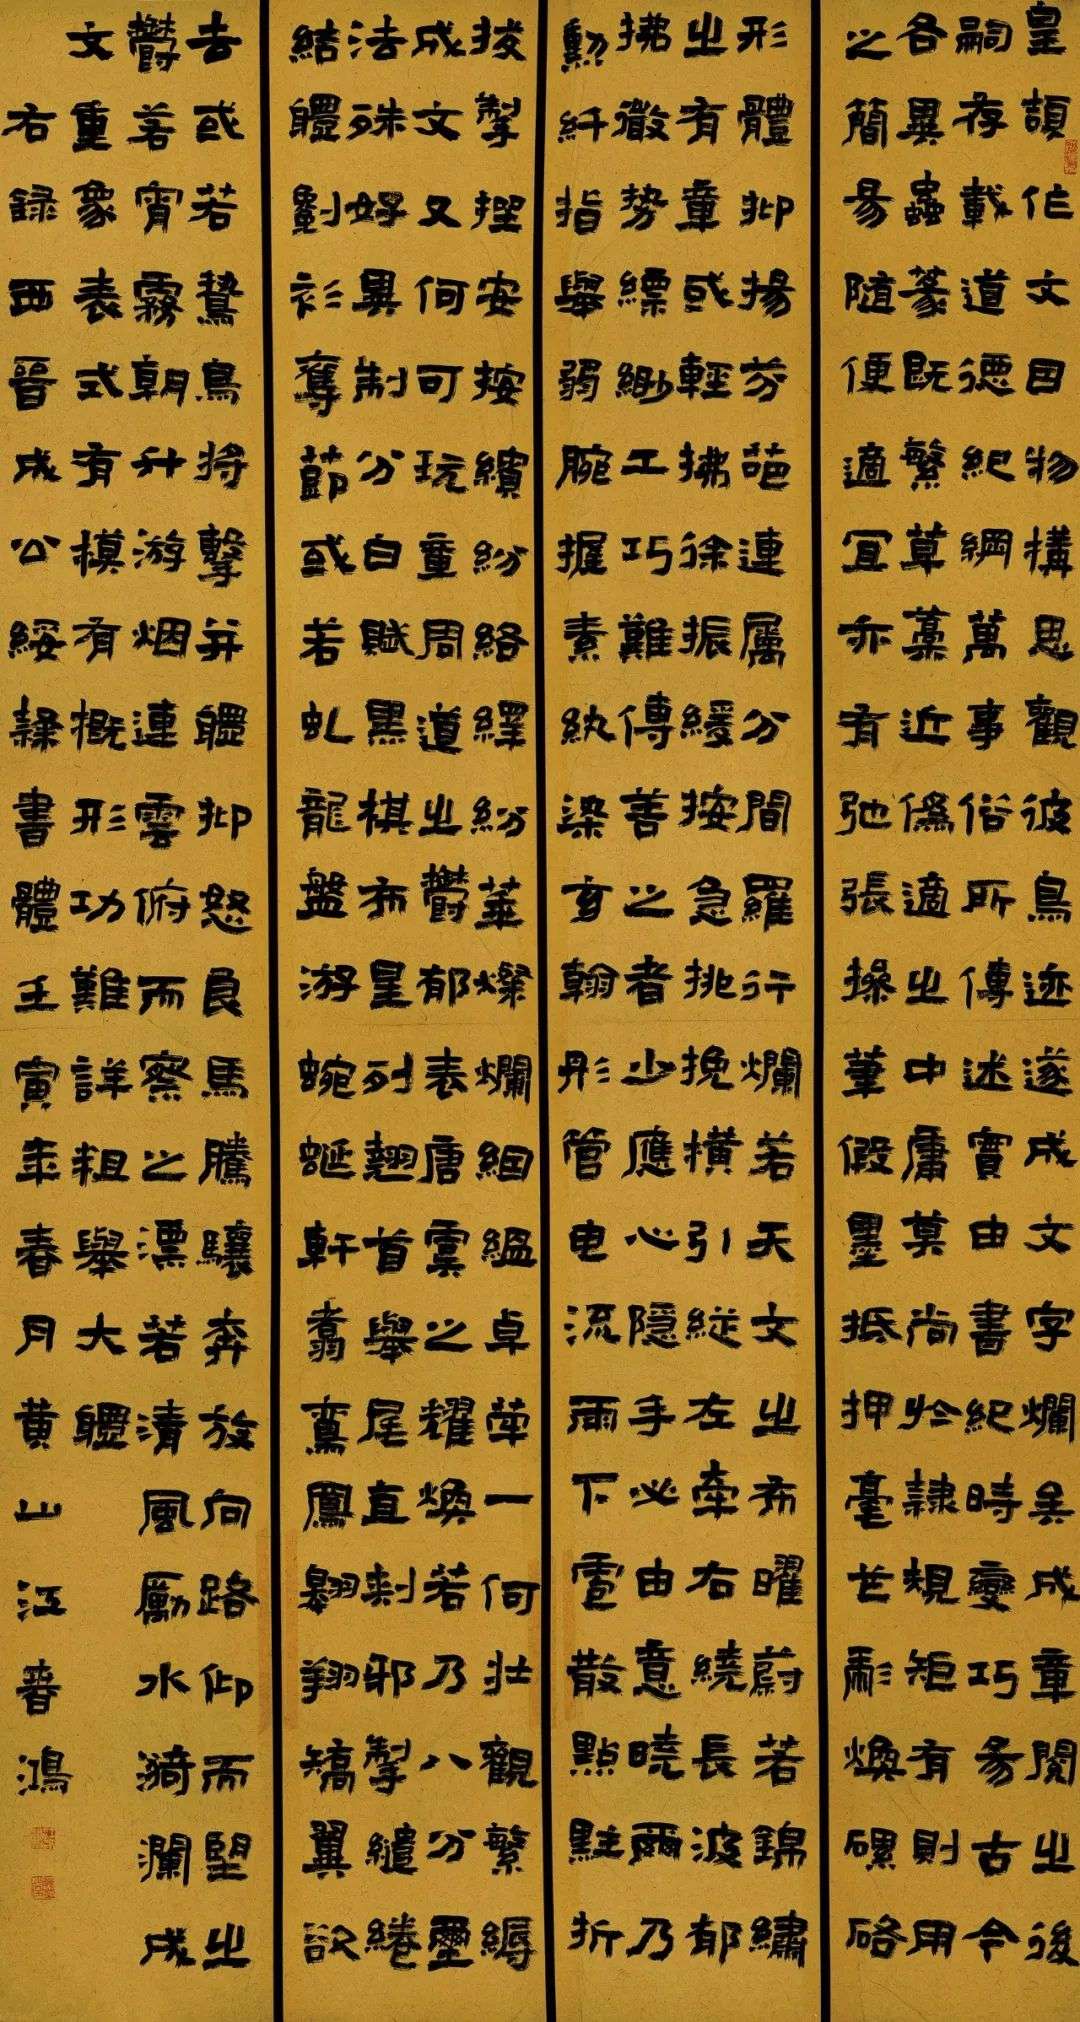 皇頡作文因物構思觀彼鳥迹遂成文字爛矣成章閱之後
嗣存載道德紀綱萬事俗所傳述實由書紀時變巧易古今
各異蟲篆既繁草藁近僞適之中庸莫尚於隸規矩有則用
之簡易隨便適宜亦有弛張操筆假墨抵押毫芒彪煥磥硌
形體抑揚芬葩連屬分間羅行爛若天文之布曜蔚若錦繡
之有章或輕拂徐振緩按急挑挽橫引縱左牽右繞長波郁
拂微勢縹緲工巧難傳善之者少應心隱手必由意曉爾乃
動纤指舉弱腕握素紈染玄翰彤管电流雨下雹散點黈折
拔掣挫安按繽紛絡繹紛華燦爛絪縕卓犖一何壯觀繁縟
成文又何可玩重周道之鬱郁表唐虞之耀煥若乃八分璽
法殊好異制分白賦黑棋布星列翹首舉尾直刺邪掣繾綣
結體劖衫奪節或若虬龍盤游蜿蜒軒翥鸞鳳翱翔矯翼欲
去或若鷙鳥將擊并體抑怒良馬騰驤奔放向路仰而望之
鬱若宵霧朝升游烟連雲俯而察之漂若清風厲水漪瀾成
文重象表式有模有概形功難詳粗舉大體
右録西晉成公綏隸書體壬寅年春月黄山江春鴻